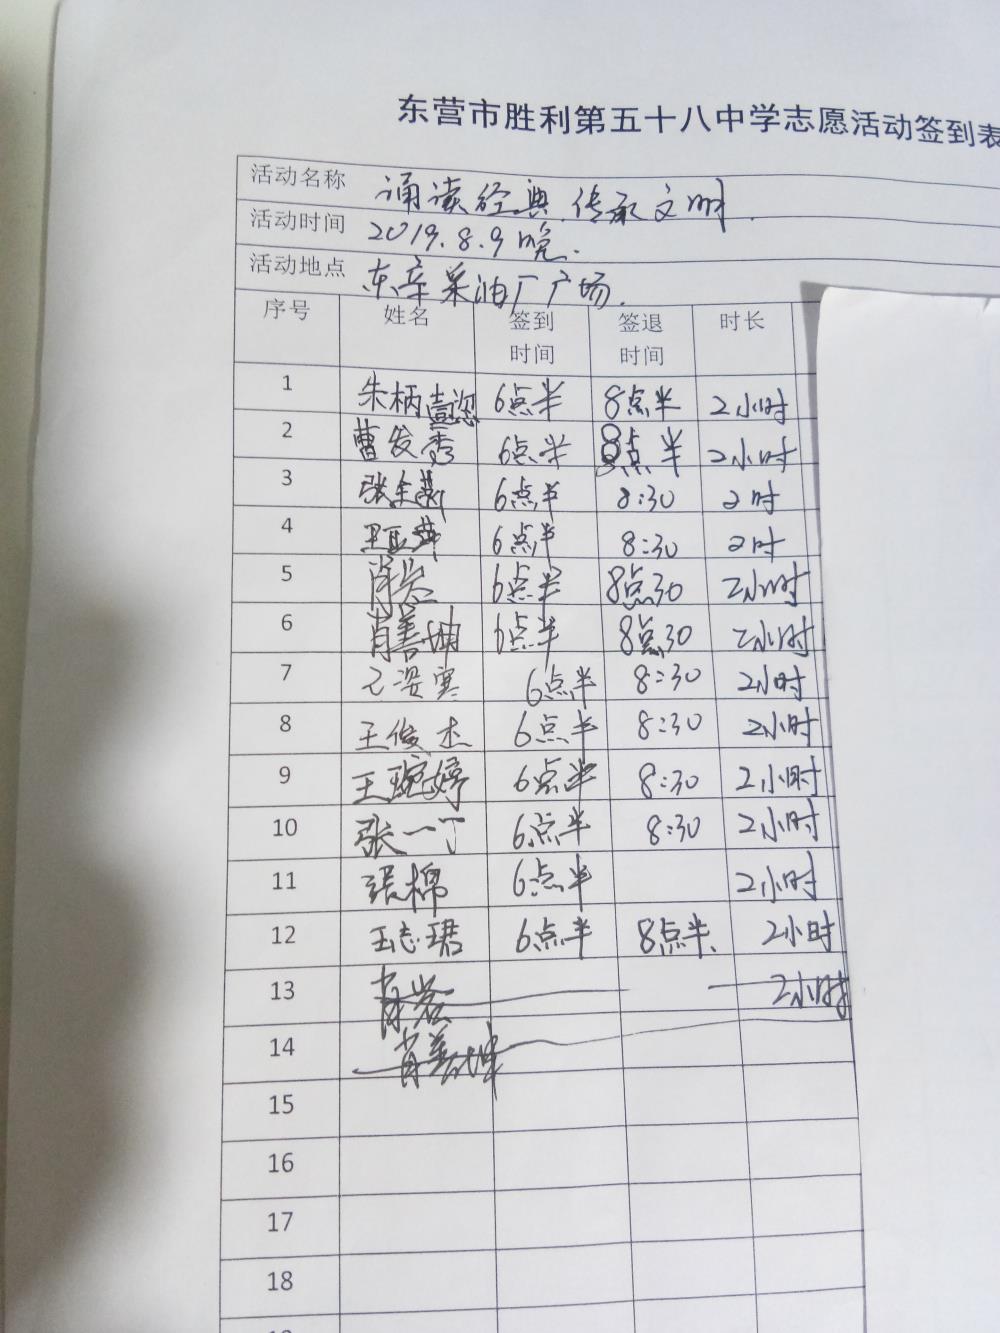 东营市胜利第五十八中学志愿活动签到表
活动名称 诵读经典.传承文明.
活动时间 2019.8.9晚.
活动地点 东辛采油厂广场.
序号 姓名 签到时间 签退时间 时长
1 朱柄壹 6点半 8点半 2小时
2 曹发秀 6点半 8点半 2小时
3 张 6点半 8:30 2时
4 王亚萍 6点半 8:30 2时
5 肖 6点半 8点30 2小时
6 肖善坤 6点半 8点30 2小时
7 姿寒 6点半 8:30 2小时
8 王俊杰 6点半 8:30 2小时
9 王琬婷 6点半 8:30 2小时
10 张一丁 6点半 8:30 2小时
11 张棉 6点半 2小时
12 王志珺 6点半 8点半. 2小时
13 肖 2小时
14 肖善坤
15
16
17
18